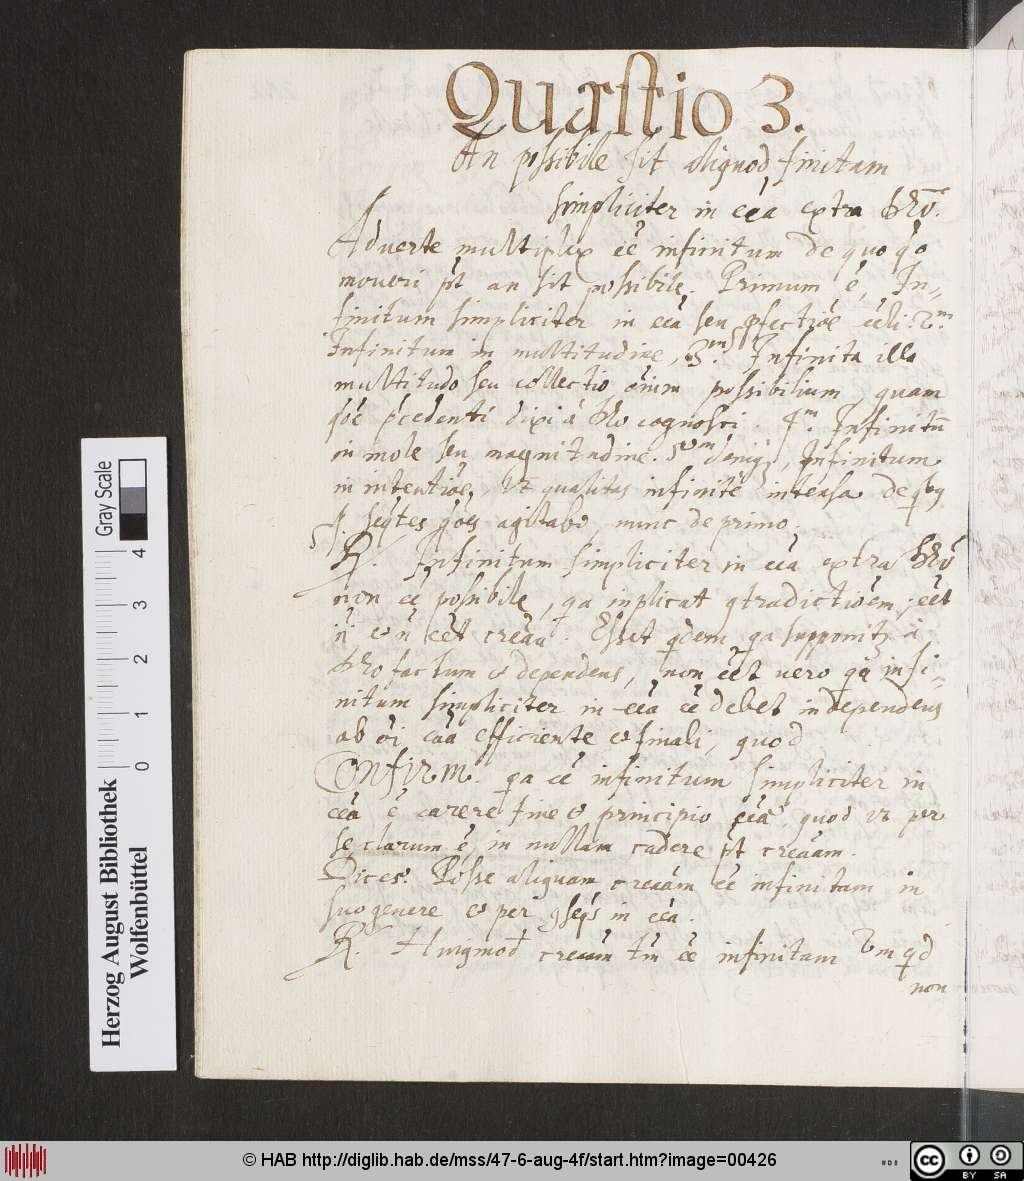 Quæstio 3.
An possibile sit aliquod finitum
simpliciter in eēa extra Deū.
Adverte multiplex eē infinitum de quo q̃o
moveri pt̃ an sit possibile. Primum ē, In-
finitum simpliciter in eēa seu pfectiōe eēli. 2m.
Infinitum in multitudine, 3m. Infinita illa
multitudo seu collectio oīum possibilium, quam
q̃oē p̃cedenti dixi á Deo cognosci. 4m. Infinitū
in mole seu magnitudine. 5um deniq;, Infinitum
in intentiōe, Vt qualitas infinitē intensa de qbq
seq̃tes q̃oēs agitabo, nunc de primo.
R. Infinitum simpliciter in eēa extra Deū
non eē possibile, qa inplicat 9tradictiōem, eēt
n̄ et n̄ eēt creāa. Esset qdem qa supponitr á
Deo factum et dependens, non eēt vero qa infi-
nitum simpliciter in eēa eē debet independens
ab oī cāa efficiente et finali, quod
Confirm. qa eē infinitum simpliciter in
eēa ē carere fine et principio eēae, quod Vt per
se clarum ē, in nullam cadere pt̃ creāam.
Dices. Posse aliquam creāam eē infinitam in
suo genere et per 9seqs in eēa.
R. Huiqmod creāam tm̄ eē infinitam 2m qd
non
Herzog August Bibliothek
Wolfenbüttel
Gray Scale
0 1 2 3 4
© HAB http://diglib.hab.de/mss/47-6-aug-4f/start.htm?image=00426
cc BY SA